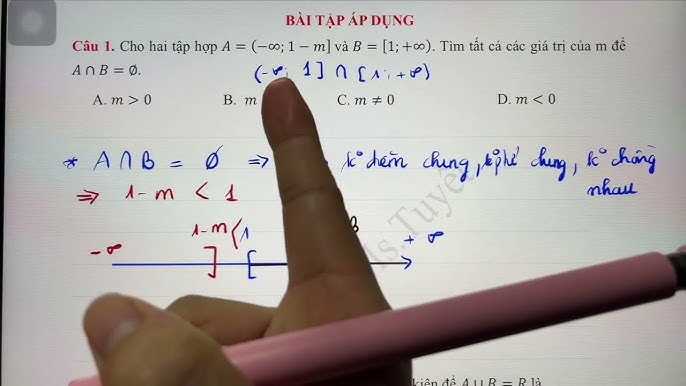 BÀI TẬP ÁP DỤNG
Câu 1. Cho hai tập hợp A = (−∞; 1 − m] và B = [1; +∞). Tìm tất cả các giá trị của m để
A ∩ B = ∅.
(-∞; 1] ∩ [1; +∞)
A. m > 0 B. m C. m ≠ 0 D. m < 0
* A ∩ B = ∅ => k° chung, chung, k°
=> 1-m < 1 nhau
1-m < 1 B
-∞ ] [ + ∞
Ms.Tuyê
kiện để A ∪ B = R là